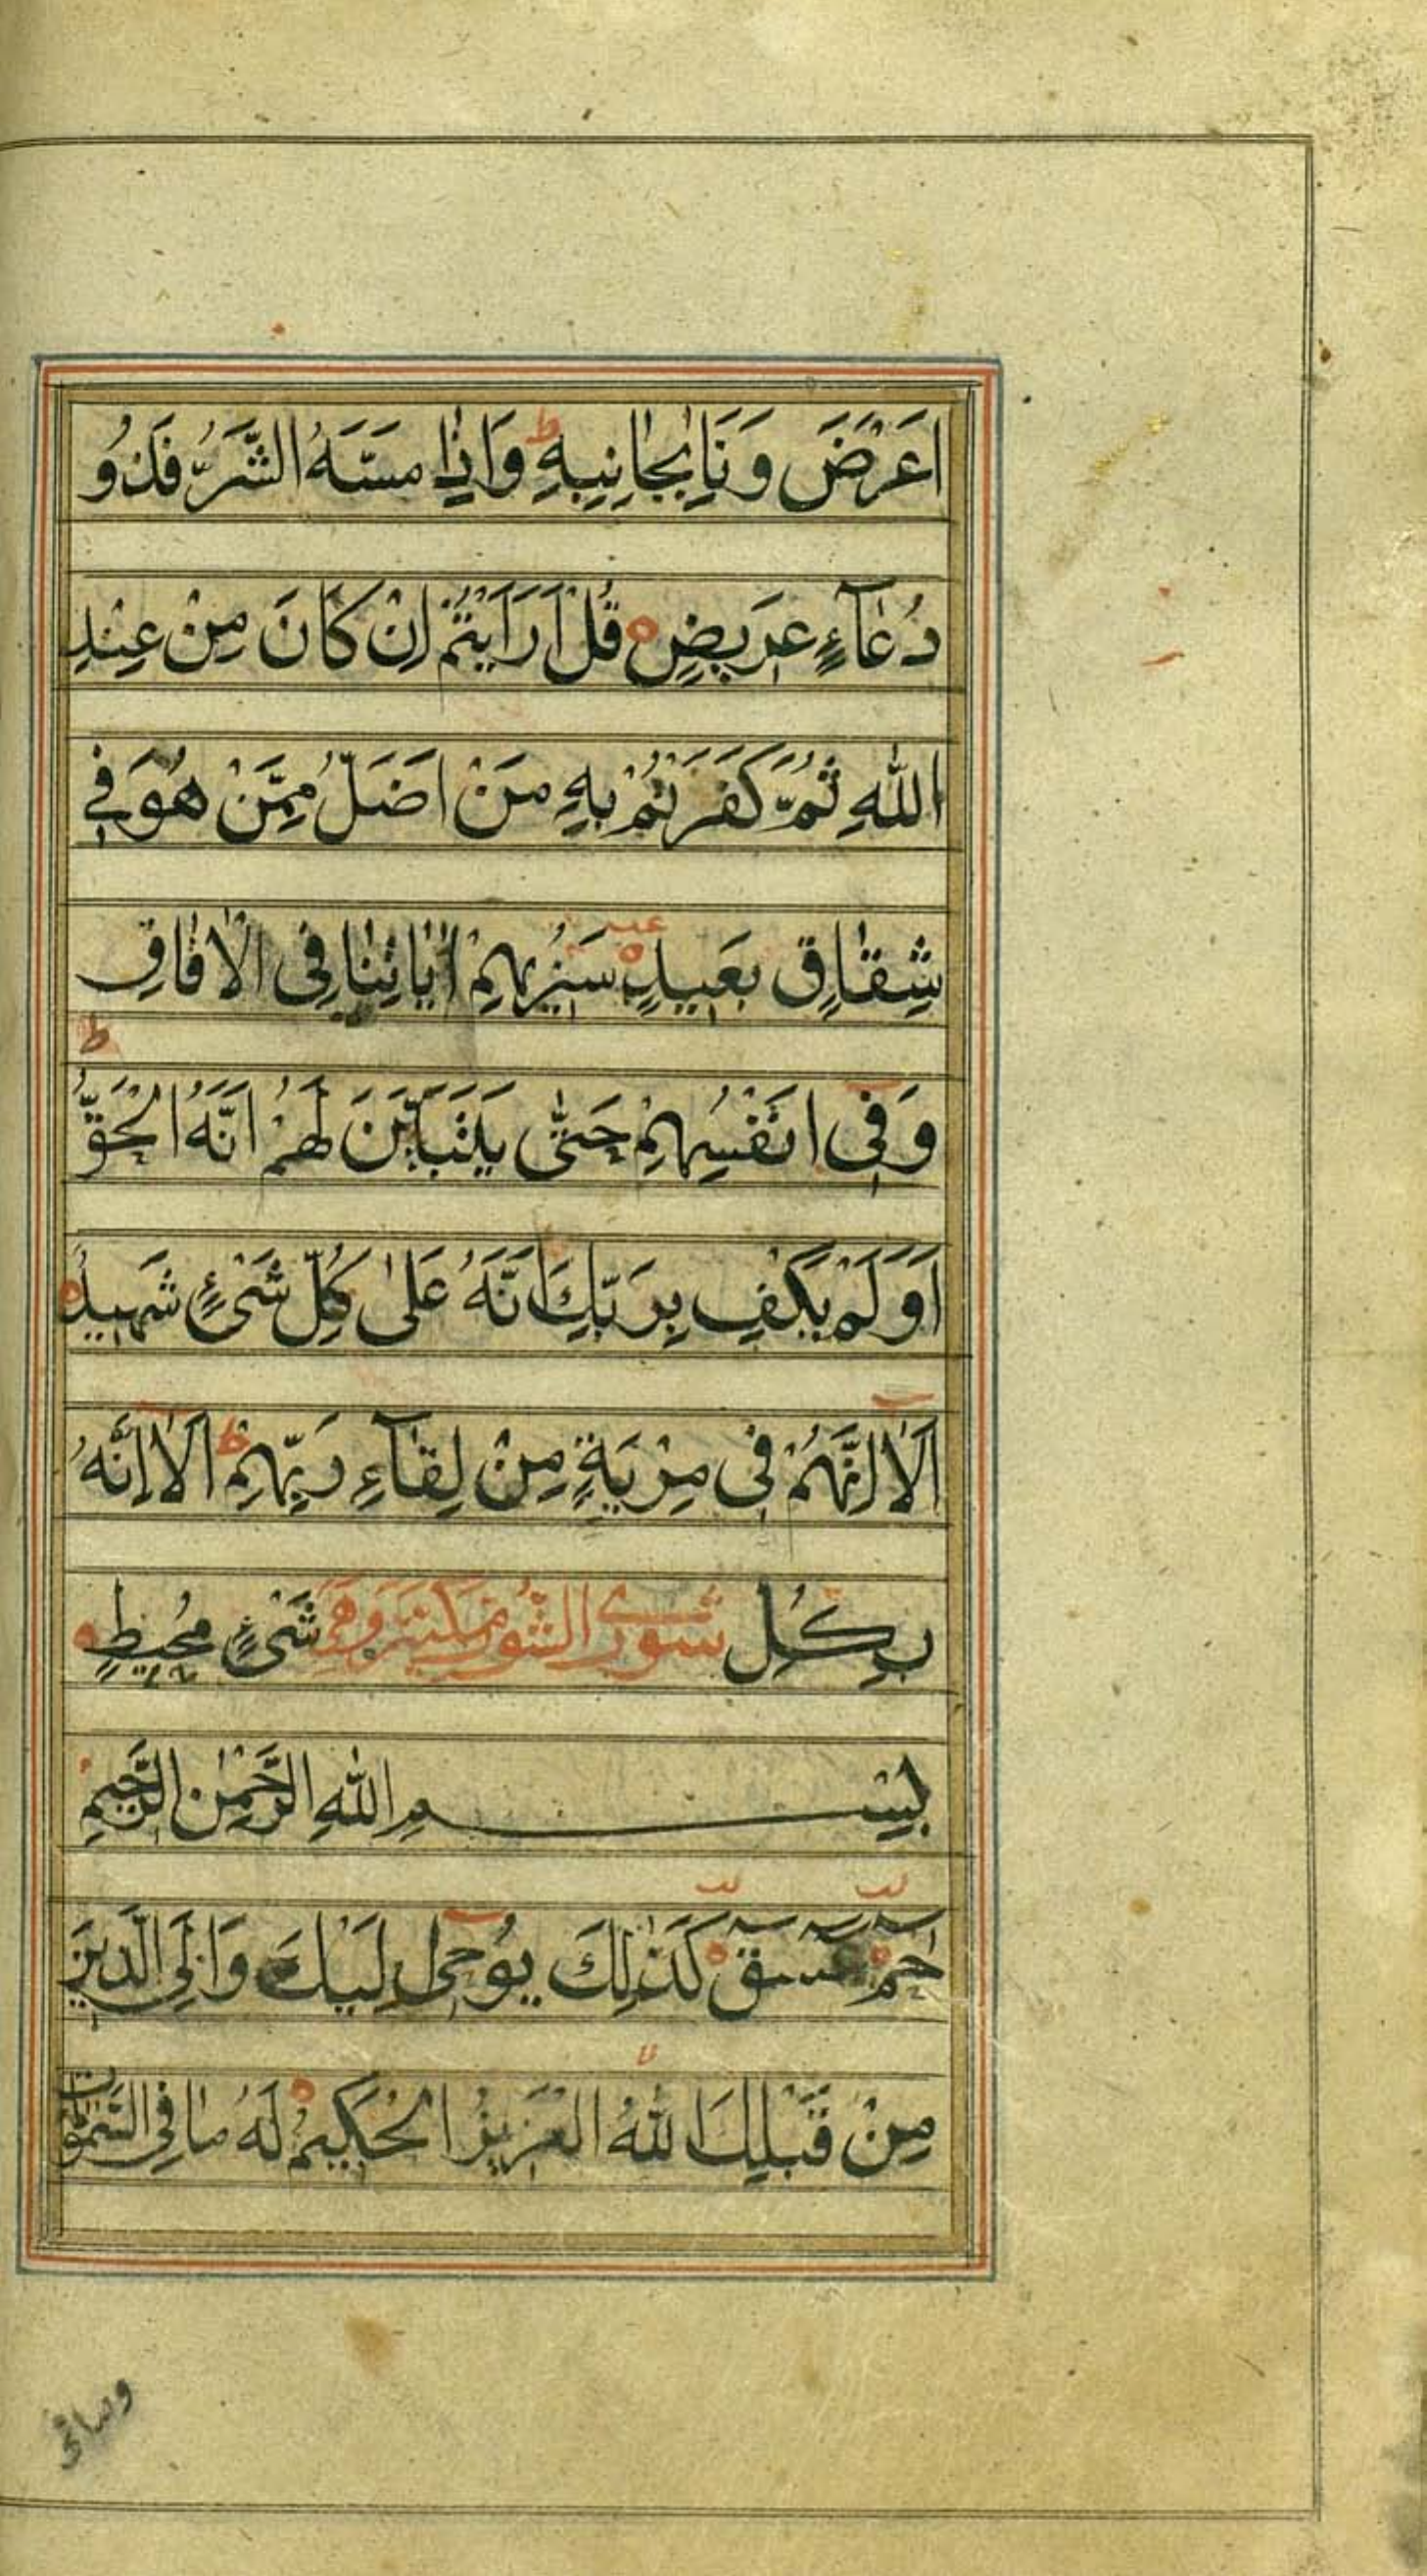 اَعْرَضَ وَنَاٰ بِجَانِبِهٖ ط وَاِذَا مَسَّهُ الشَّرُّ فَذُو
دُعَآءٍ عَرِيضٍ ه قُلْ اَرَاَيْتُمْ اِنْ كَانَ مِنْ عِنْدِ
اللّٰهِ ثُمَّ كَفَرْتُمْ بِهٖ مَنْ اَضَلُّ مِمَّنْ هُوَ فِي
شِقَاقٍ بَعِيدٍ ه سَنُرِيهِمْ اٰيَاتِنَا فِي الْاٰفَاقِ
وَفِي اَنْفُسِهِمْ حَتّٰى يَتَبَيَّنَ لَهُمْ اَنَّهُ الْحَقُّ ط
اَوَلَمْ يَكْفِ بِرَبِّكَ اَنَّهُ عَلٰى كُلِّ شَيْءٍ شَهِيدٌ ه
اَلَا اِنَّهُمْ فِي مِرْيَةٍ مِنْ لِقَآءِ رَبِّهِمْ ط اَلَا اِنَّهُ
بِكُلِّ شَيْءٍ مُحِيطٍ ه
بِسْمِ اللّٰهِ الرَّحْمٰنِ الرَّحِيمِ
حٰمٓ ه عٓسٓقٓ ه كَذٰلِكَ يُوحِي اِلَيْكَ وَاِلَى الَّذِينَ
مِنْ قَبْلِكَ اللّٰهُ الْعَزِيزُ الْحَكِيمُ ه لَهُ مَا فِي السَّمٰوَاتِ
وما فى